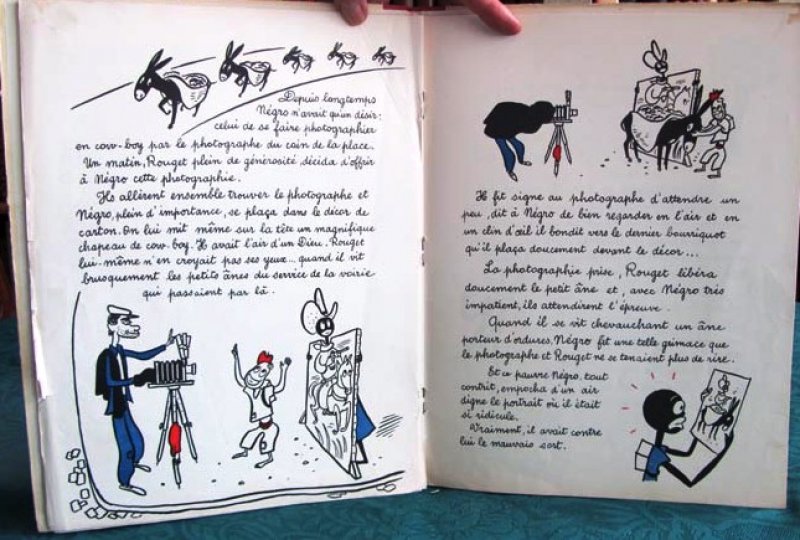 Depuis longtemps
Négro n'avait qu'un désir:
celui de se faire photographier
en cow-boy par le photographe du coin de la place.
Un matin, Rouget plein de générosité décida d'offrir
à Négro cette photographie.
Ils allèrent ensemble trouver le photographe et
Négro, plein d'importance, se plaça dans le décor de
carton. On lui mit même sur la tête un magnifique
chapeau de cow-boy. Il avait l'air d'un Dieu. Rouget
lui-même n'en croyait pas ses yeux... quand il vit
brusquement les petits ânes du service de la voirie
qui passaient par là.
Il fit signe au photographe d'attendre un
peu, dit à Négro de bien regarder en l'air et en
un clin d'œil il bondit vers le dernier bourriquot
qu'il plaça doucement devant le décor...
La photographie prise, Rouget libéra
doucement le petit âne et, avec Négro très
impatient, ils attendirent l'épreuve.
Quand il se vit chevauchant un âne
porteur d'ordures, Négro fit une telle grimace que
le photographe et Rouget ne se tenaient plus de rire.
Et ce pauvre Négro, tout
contrit, empocha d'un air
digne le portrait où il était
si ridicule.
Vraiment, il avait contre
lui le mauvais sort.